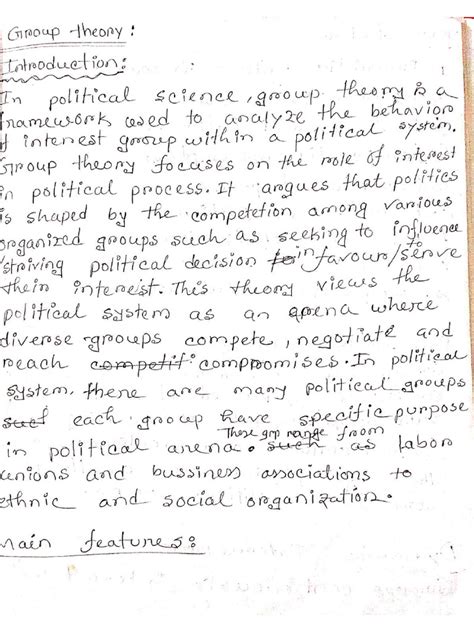 Group theory:
Introduction:
In political science, group theory is a
framework used to analyze the behavior
of interest group within a political system.
Group theory focuses on the role of interest
in political process. It argues that politics
is shaped by the competetion among various
organized groups such as seeking to influence
striving political decision to in favour/serve
their interest. This theory views the
political system as an arena where
diverse groups compete, negotiate and
reach competit: compromises. In political
system, there are many political groups
such each group have specific purpose
in political arena. These grp range from such as labor
unions and bussiness associations to
ethnic and social organization.
Main features: